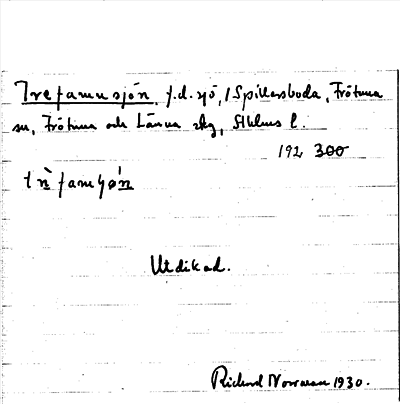 Trefamnsjön, f.d. sjö, i Spillersboda, Frötuna
sn, Frötuna och Länna skg, Sthlms l.
192 300
Utdikad.
Richard Norrman 1930.